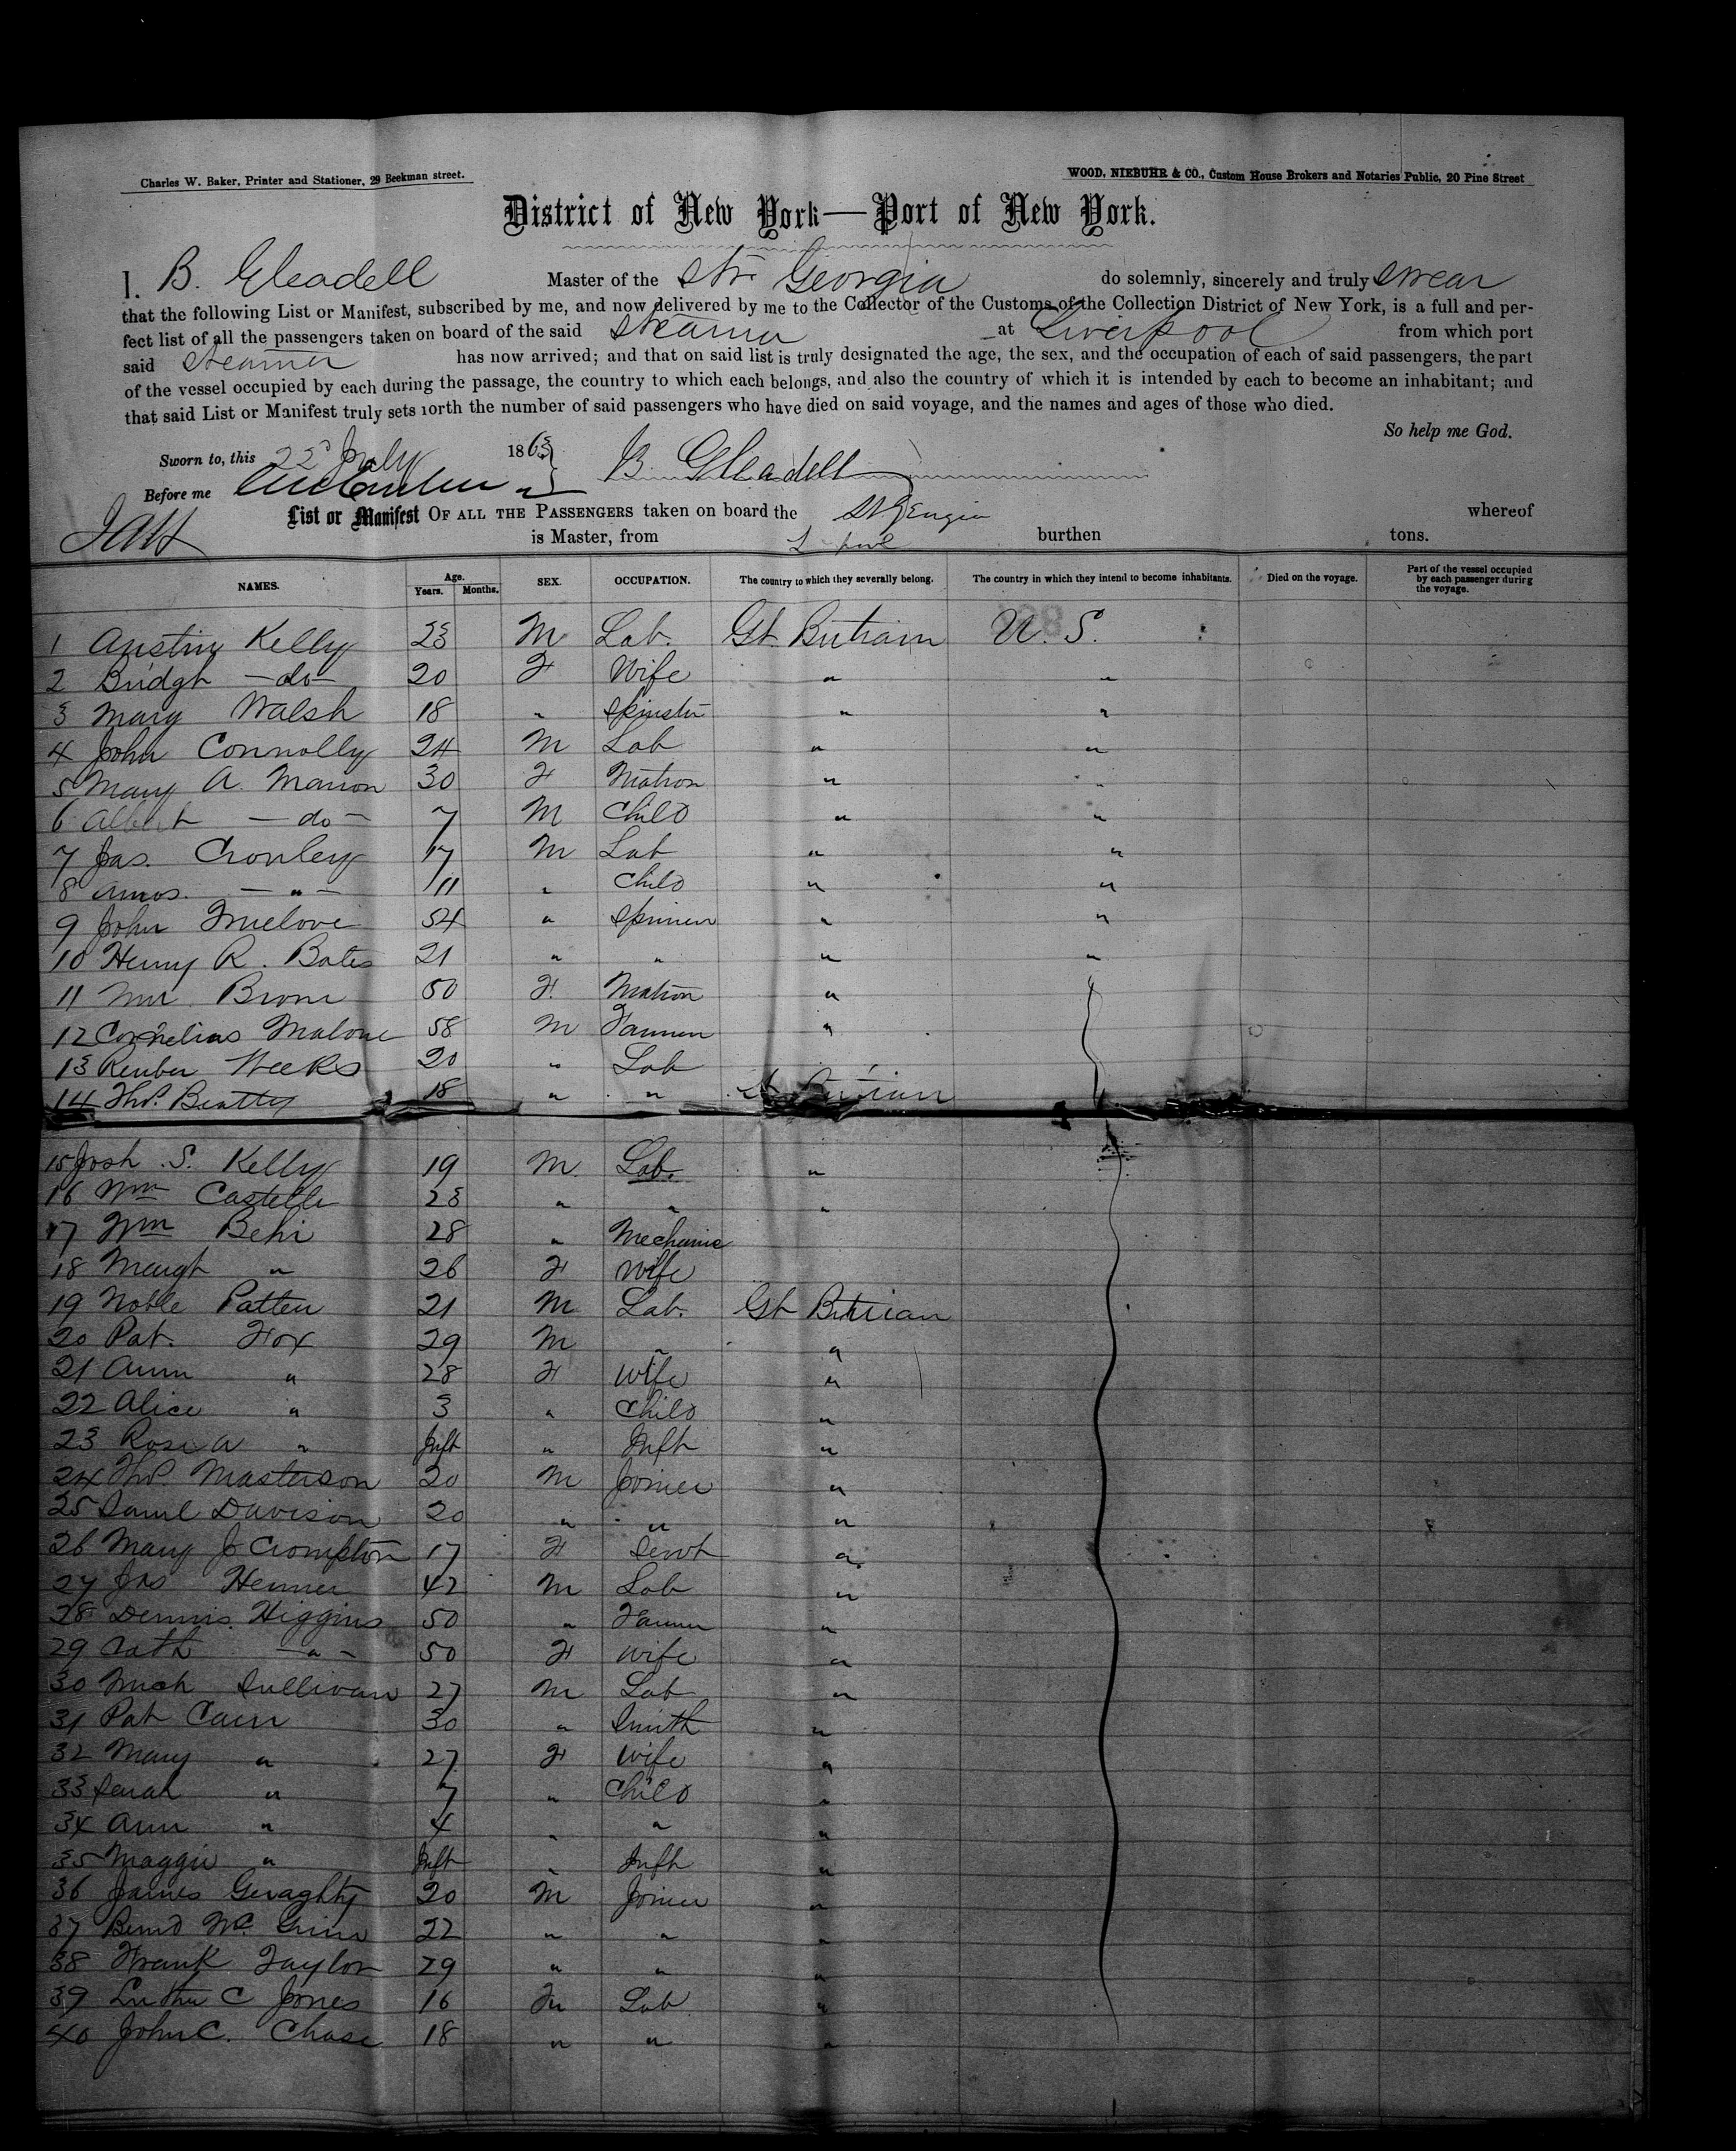 Charles W. Baker, Printer and Stationer, 29 Beekman street.
WOOD, NIEBUHR & CO., Custom House Brokers and Notaries Public, 20 Pine Street
District of New York—Port of New York.
I. B. Gleadell Master of the Str Georgia do solemnly, sincerely and truly swear
that the following List or Manifest, subscribed by me, and now delivered by me to the Collector of the Customs of the Collection District of New York, is a full and per-
fect list of all the passengers taken on board of the said Steamer at Liverpool from which port
said Steamer has now arrived; and that on said list is truly designated the age, the sex, and the occupation of each of said passengers, the part
of the vessel occupied by each during the passage, the country to which each belongs, and also the country of which it is intended by each to become an inhabitant; and
that said List or Manifest truly sets forth the number of said passengers who have died on said voyage, and the names and ages of those who died.
So help me God.
Sworn to, this 22d July 1863 B. Gleadell
Before me
List or Manifest OF ALL THE PASSENGERS taken on board the St Georgia whereof
is Master, from L pool burthen tons.
NAMES. Age. Years. Months. SEX. OCCUPATION. The country to which they severally belong. The country in which they intend to become inhabitants. Died on the voyage. Part of the vessel occupied by each passenger during the voyage.
1 Austin Kelly 23 M Lab. Gt. Britain U. S.
2 Bridgt —do— 20 F Wife " "
3 Mary Walsh 18 " Spinster " "
4 John Connolly 24 M Lab " "
5 Mary A. Marron 30 F Matron " "
6 Albert —do— 7 M Child " "
7 Jas. Cronley 17 M Lab " "
8 Amos. — " — 11 " Child " "
9 John Truelove 54 " Spinner " "
10 Henry R. Bates 21 " " " "
11 50 F. Matron "
12 Cornelius Malone 58 M Farmer "
13 Reuben Weeks 20 " Lab
14 Thos. Beatty 18 " " Britain
15 Josh S. Kelly 19 M Lab. "
16 Wm Castelle 23 " " "
17 Wm Behi 28 " Mechanic
18 Margt " 26 F Wife
19 Noble Patten 21 M Lab. Gt Britian
20 Pat. Fox 29 M " "
21 Ann " 28 F Wife "
22 Alice " 3 " Child "
23 Rose A " Inft " Inft "
24 Thos. Masterson 20 M Joiner "
25 Saml Davison 20 " " "
26 Mary J Crompton 17 F Servt "
27 Jas 42 M Lab "
28 Dennis Higgins 50 " Farmer "
29 Cath — " — 50 F Wife "
30 Mich Sullivan 27 M Lab "
31 Pat Cain 30 " Smith "
32 Mary " 27 F Wife "
33 Sarah " 7 " Child "
34 Ann " 4 " " "
35 Maggie " Inft " Inft "
36 James Geraghty 20 M Joiner "
37 Bernd 22 " " "
38 Frank Taylor 29 " " "
39 Luther C Jones 16 M Lab "
40 John C. Chase 18 " " "